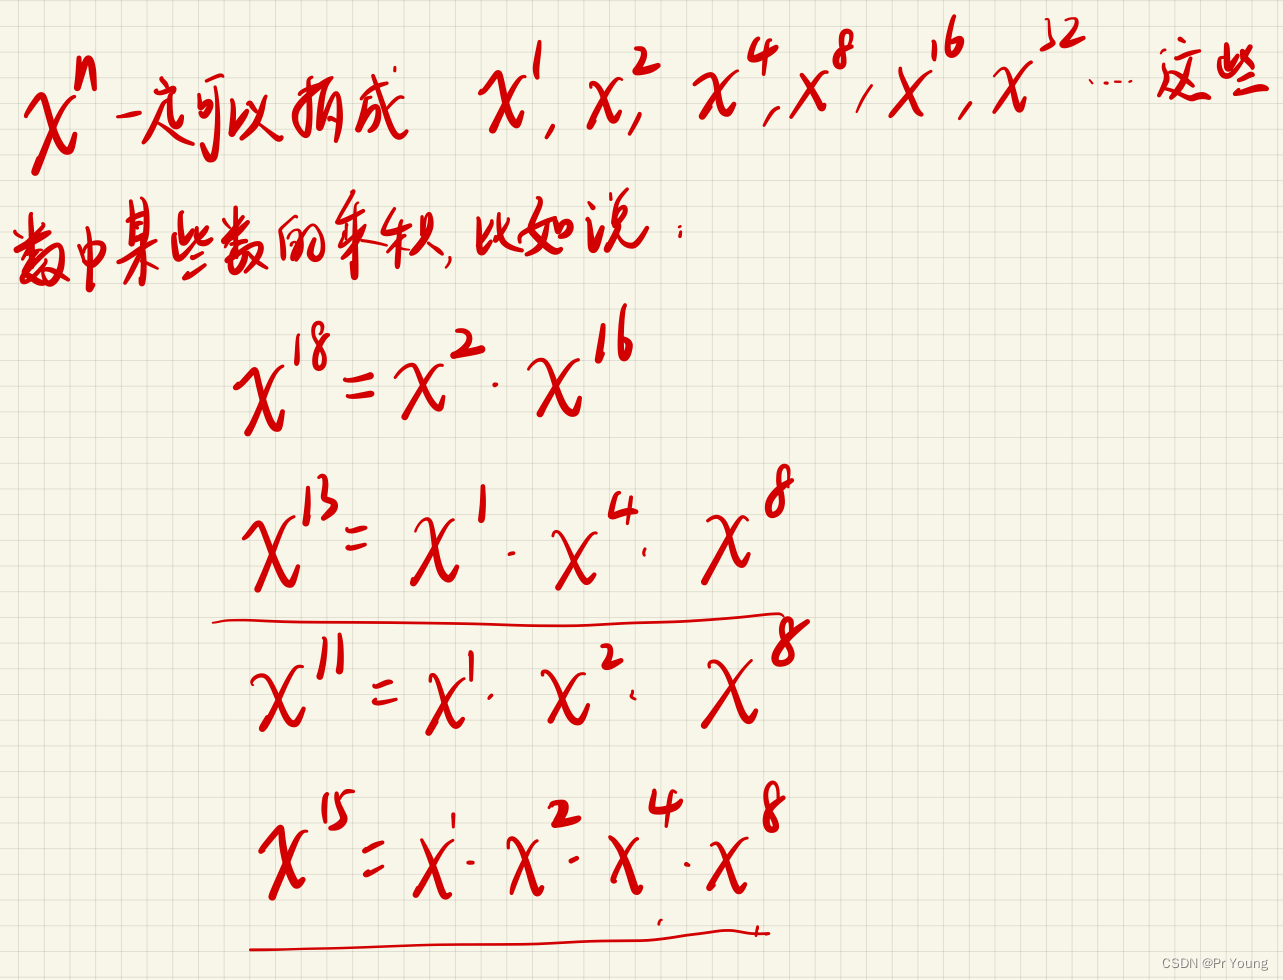 xⁿ一定可以拆成 x¹, x², x⁴, x⁸, x¹⁶, x³² …… 这些
数中某些数的乘积, 比如说:
x¹⁸ = x² · x¹⁶
x¹³ = x¹ · x⁴ · x⁸
x¹¹ = x¹ · x² · x⁸
x¹⁵ = x¹ · x² · x⁴ · x⁸
CSDN @Pr Young